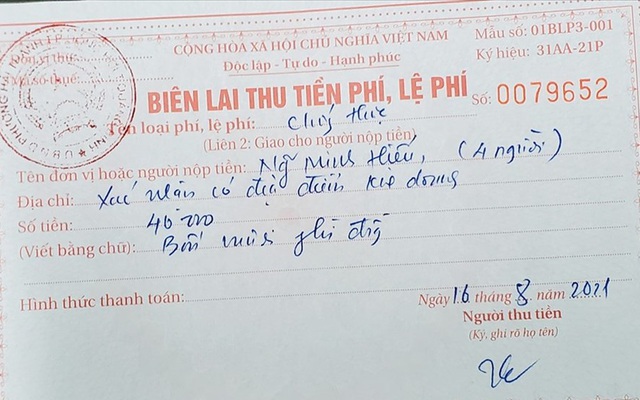 CỘNG HÒA XÃ HỘI CHỦ NGHĨA VIỆT NAM
Độc lập - Tự do - Hạnh phúc
Mẫu số: 01BLP3-001
Ký hiệu: 31AA-21P
Đơn vị thu:
Mã số thuế:
BIÊN LAI THU TIỀN PHÍ, LỆ PHÍ
Số: 0079652
Tên loại phí, lệ phí: Chứng thực
(Liên 2: Giao cho người nộp tiền)
Tên đơn vị hoặc người nộp tiền: Ng Minh Hiếu, (4 người)
Địa chỉ: Xác nhận có địa điểm
Số tiền: 40 000
(Viết bằng chữ): Bốn mươi
Hình thức thanh toán:
Ngày 16 tháng 8 năm 2021
Người thu tiền
(Ký, ghi rõ họ tên)